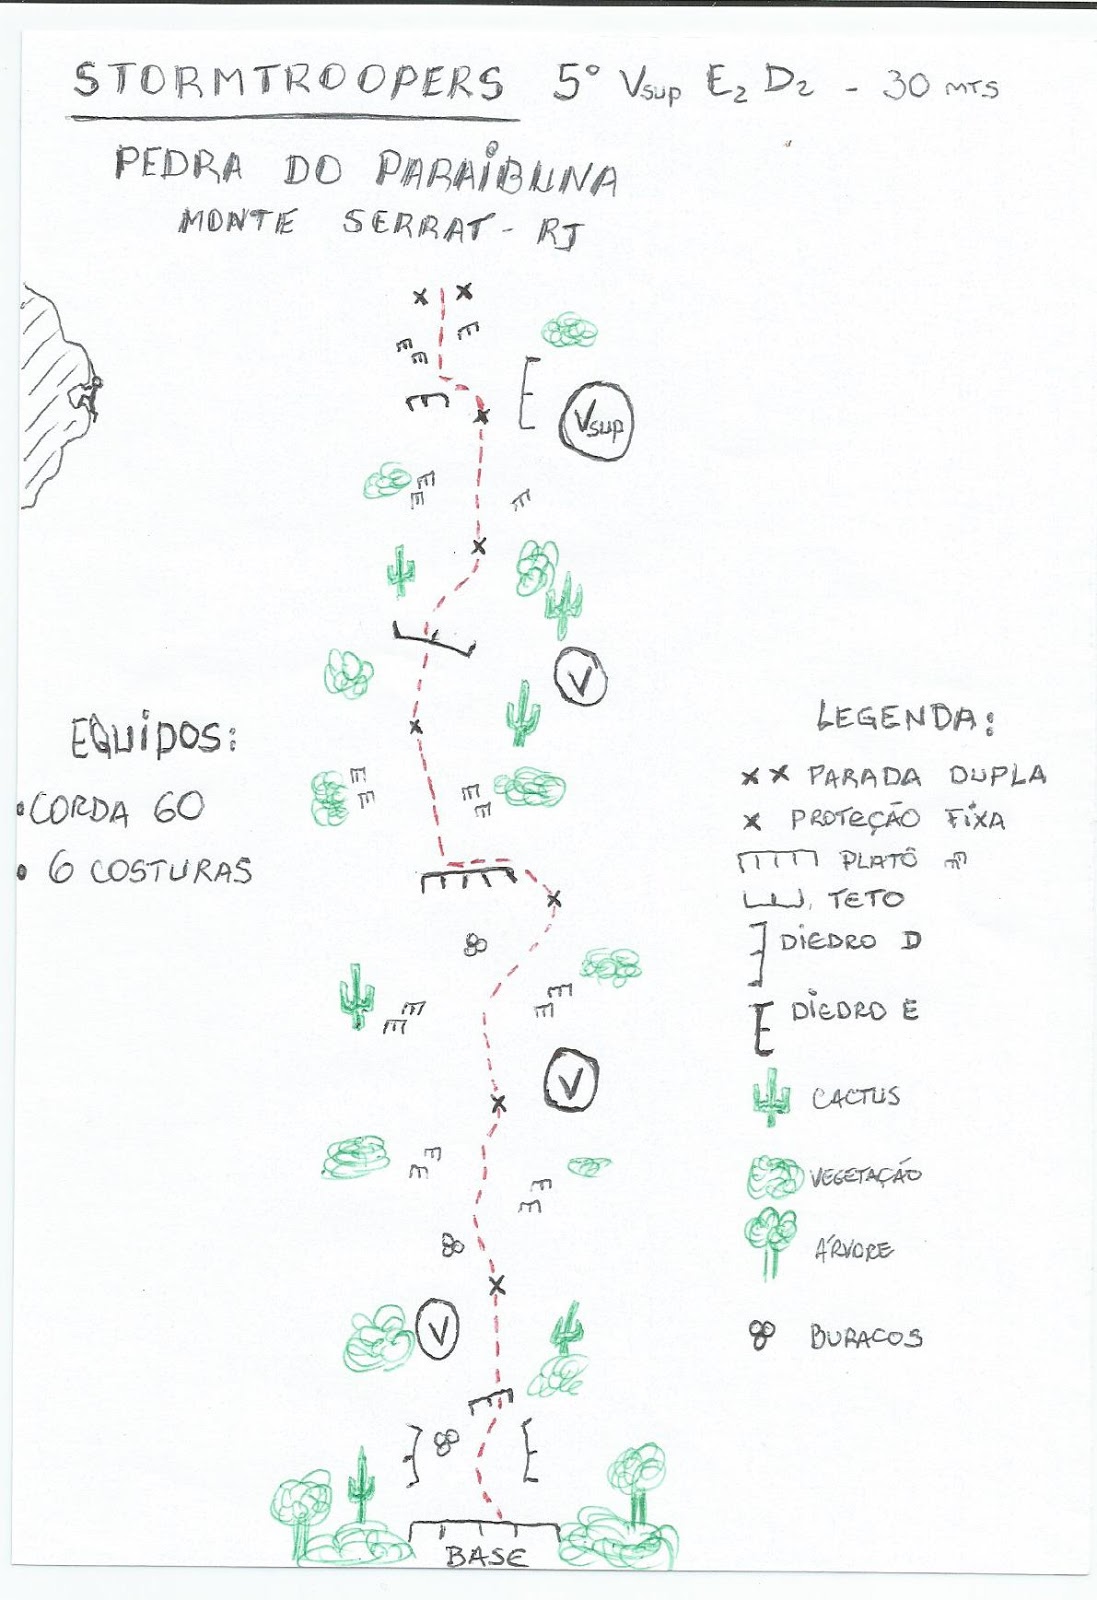 STORMTROOPERS 5° Vsup E2 D2 - 30 MTS
PEDRA DO PARAIBUNA
MONTE SERRAT - RJ
Vsup
V
EQUIPOS:
• CORDA 60
• 6 COSTURAS
LEGENDA:
x x PARADA DUPLA
x PROTEÇÃO FIXA
PLATÔ
TETO
DIEDRO D
DIEDRO E
CACTUS
VEGETAÇÃO
ÁRVORE
BURACOS
V
V
BASE